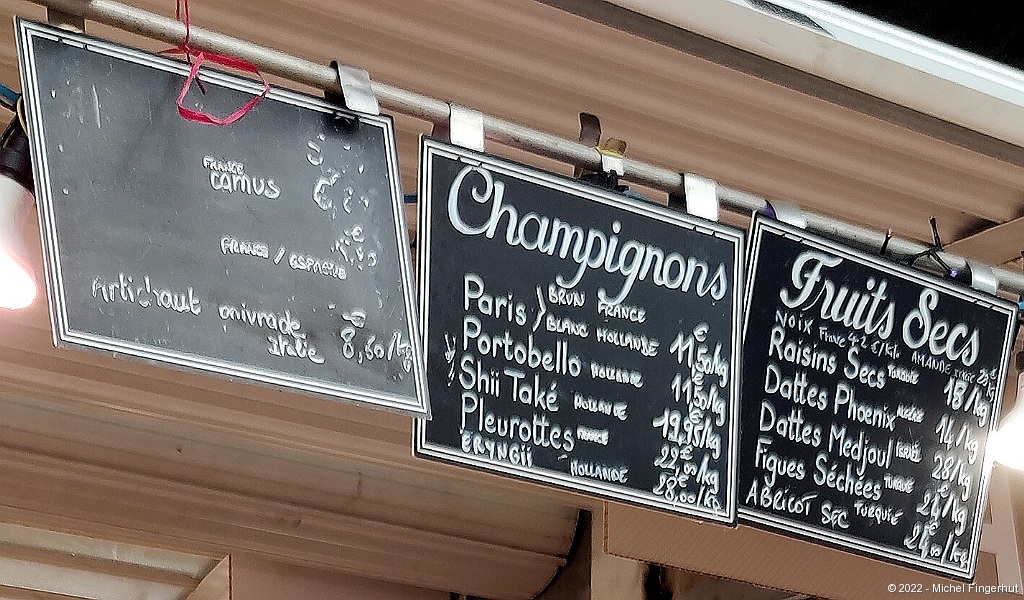 FRANCE
camus
FRANCE / ESPAGNE
Artichaut poivrade
Italie 8,50/kg
Champignons
Paris } BRUN FRANCE
BLANC HOLLANDE 11€50/kg
Portobello HOLLANDE 11,50/kg
Shii Také HOLLANDE 19,95/kg
Pleurottes FRANCE 22,00/kg
ERYNGII HOLLANDE 28,00/kg
Fruits Secs
NOIX France 4.2 €/kilo AMANDE
Raisins Secs TURQUIE 18/kg
Dattes Phoenix 14/kg
Dattes Medjoul ISRAËL 28/kg
Figues Séchées TURQUIE 24/kg
ABRICOT SEC TURQUIE 24,00/kg
© 2022 - Michel Fingerhut